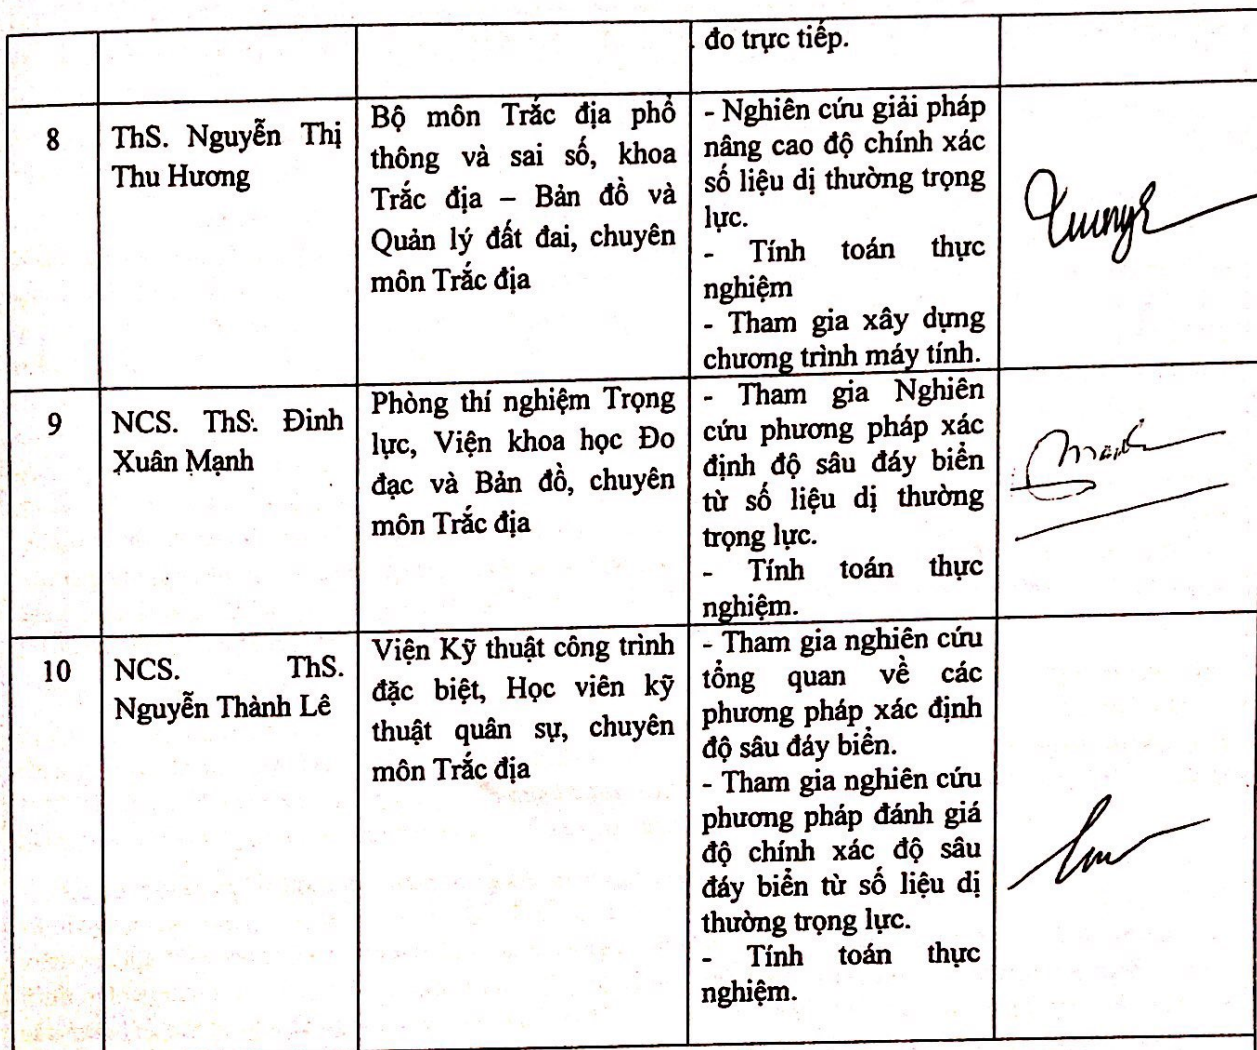 đo trực tiếp.
8
ThS. Nguyễn Thị
Thu Hương
Bộ môn Trắc địa phổ
thông và sai số, khoa
Trắc địa – Bản đồ và
Quản lý đất đai, chuyên
môn Trắc địa
- Nghiên cứu giải pháp
nâng cao độ chính xác
số liệu dị thường trọng
lực.
- Tính toán thực
nghiệm
- Tham gia xây dựng
chương trình máy tính.
9
NCS. ThS. Đinh
Xuân Mạnh
Phòng thí nghiệm Trọng
lực, Viện khoa học Đo
đạc và Bản đồ, chuyên
môn Trắc địa
- Tham gia Nghiên
cứu phương pháp xác
định độ sâu đáy biển
từ số liệu dị thường
trọng lực.
- Tính toán thực
nghiệm.
10
NCS. ThS.
Nguyễn Thành Lê
Viện Kỹ thuật công trình
đặc biệt, Học viên kỹ
thuật quân sự, chuyên
môn Trắc địa
- Tham gia nghiên cứu
tổng quan về các
phương pháp xác định
độ sâu đáy biển.
- Tham gia nghiên cứu
phương pháp đánh giá
độ chính xác độ sâu
đáy biển từ số liệu dị
thường trọng lực.
- Tính toán thực
nghiệm.